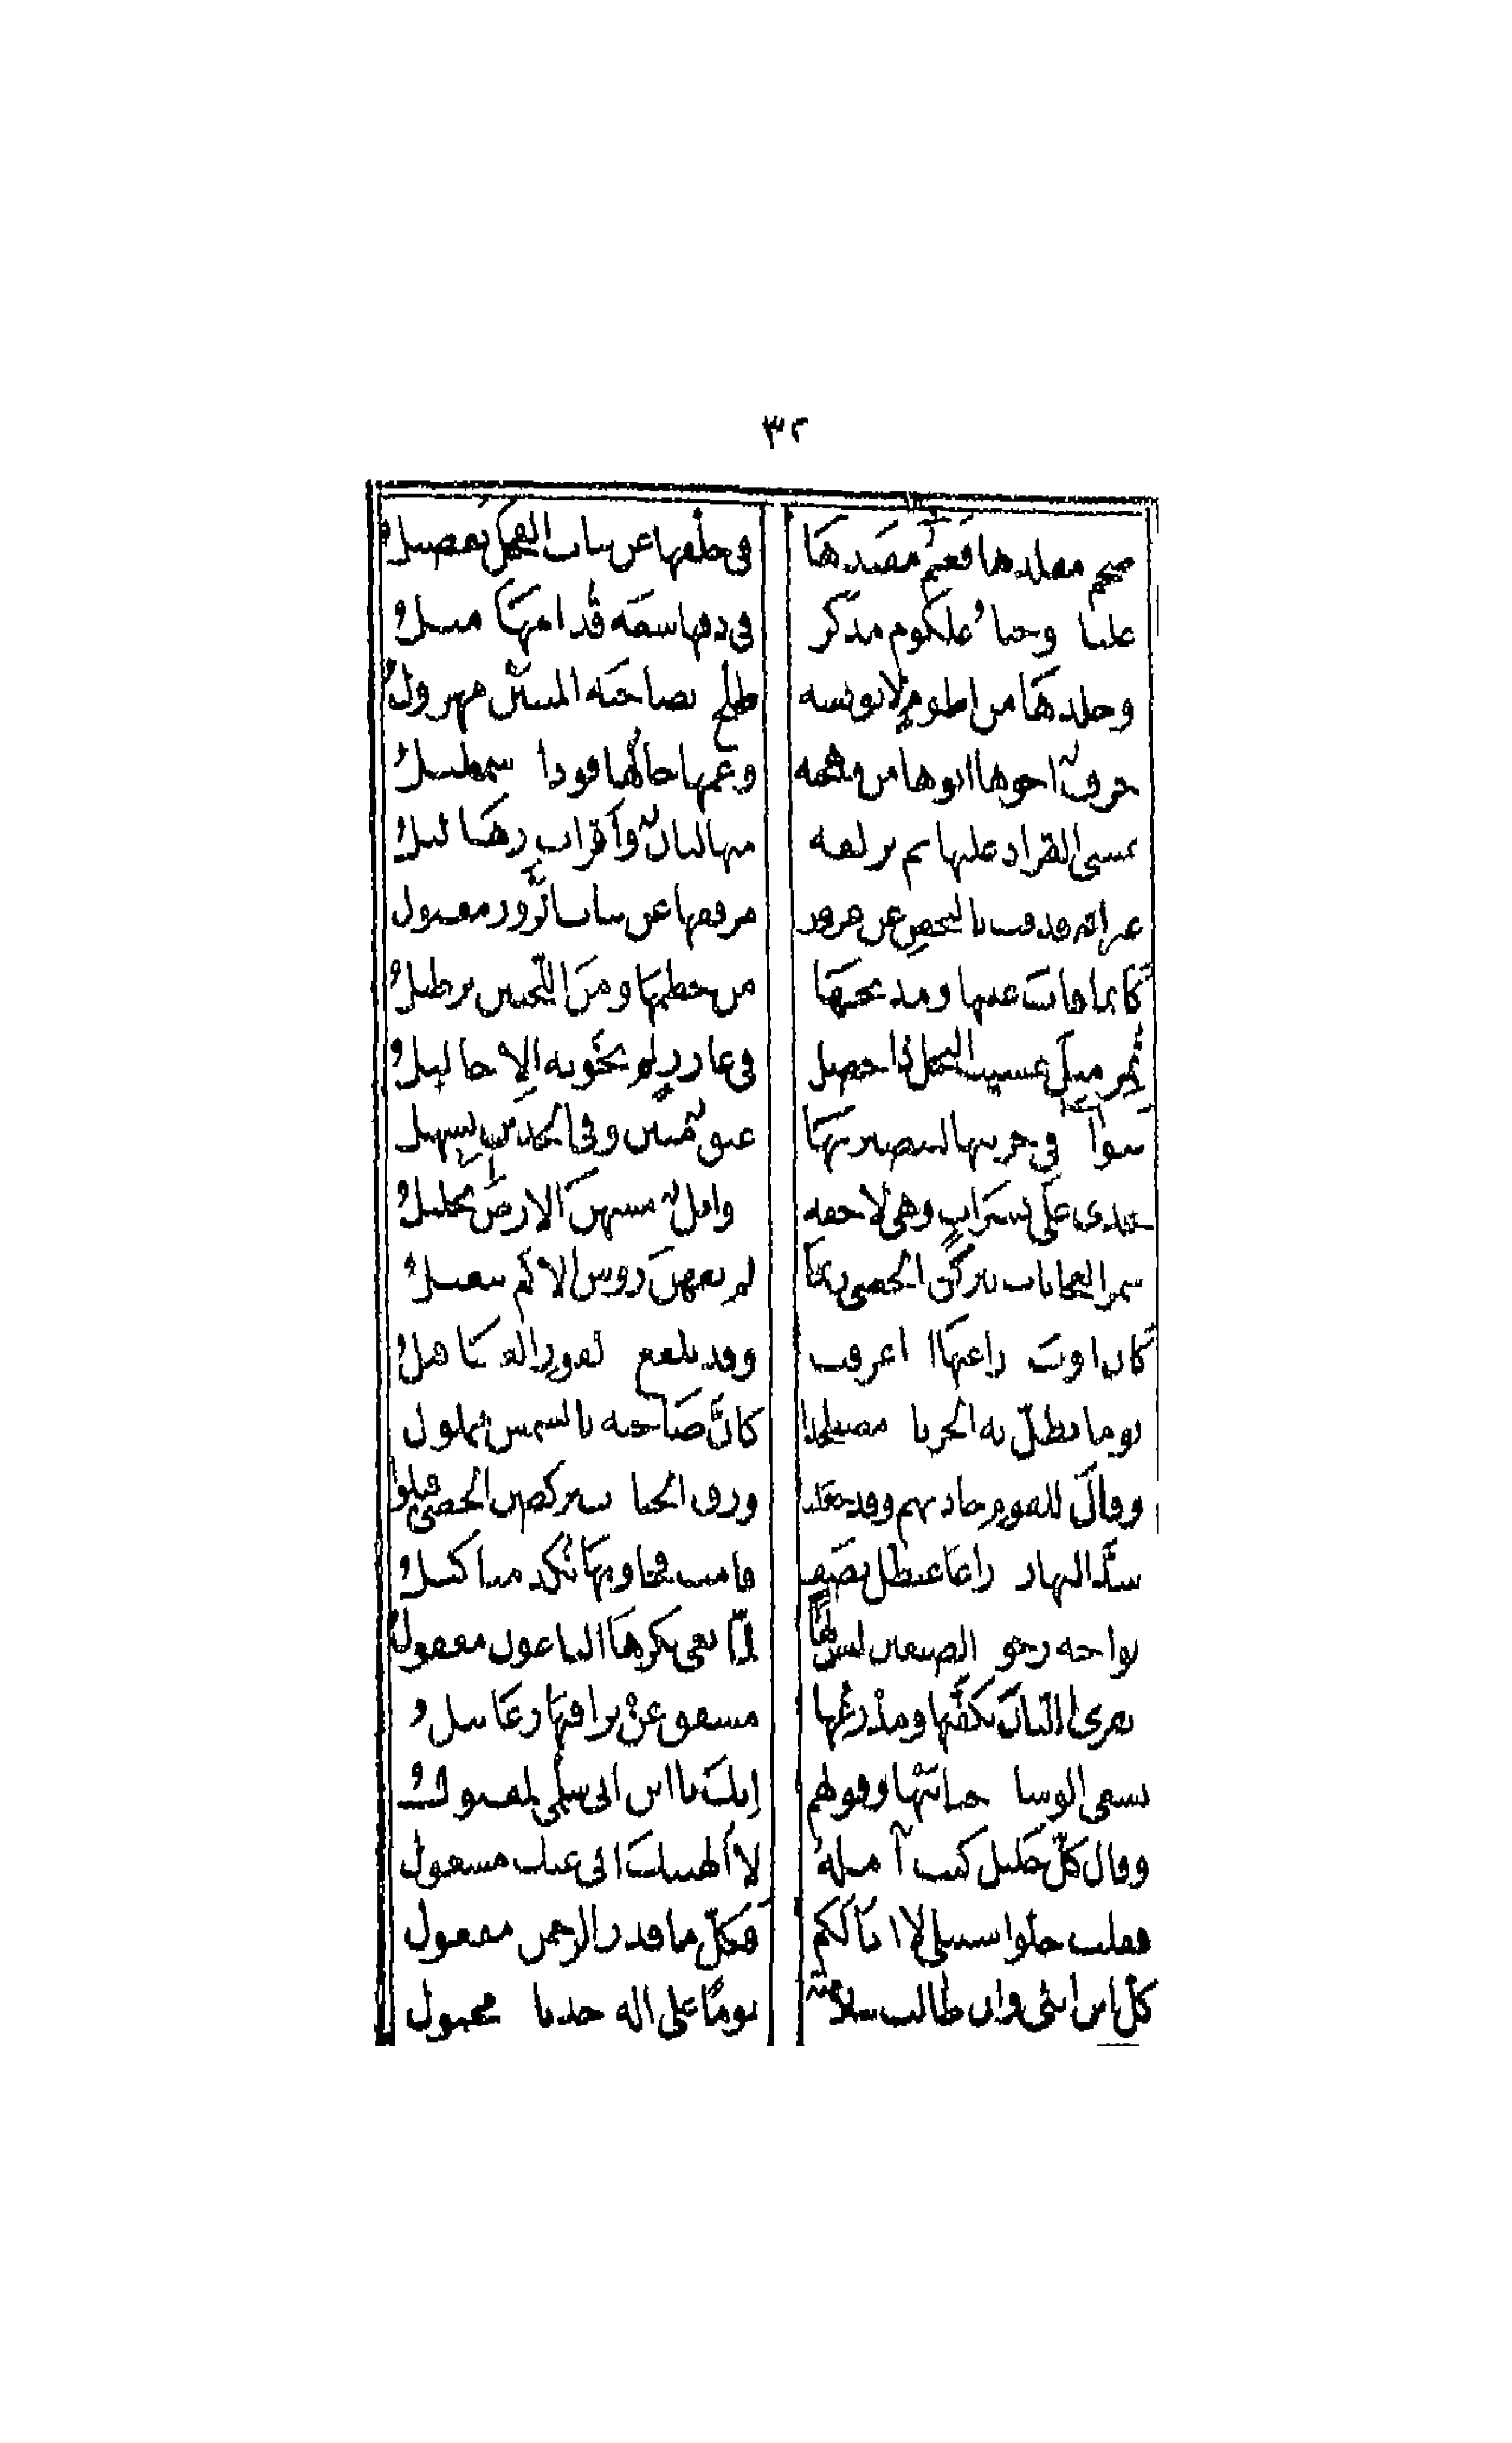 ٣٢
ضخم مقلدها فعم مقيدها في خلقها عن بنات الفحل تفضيل
غلبا وجنا علكوم مذكر في دفها سعة قدامها ميل
وجلدها من اطوم لا يويسه طلح بضاحية المتنين مهزول
حرف اخوها ابوها من مهجنة وعمها خالها قودا شمليل
يمشي القراد عليها ثم يزلقه منها لبان واقراب زهاليل
عيرانة قذفت بالنحض عن عرض مرفقها عن بنات الزور مفتول
كانما فات عينيها ومذبحها من خطمها ومن اللحيين برطيل
تمر مثل عسيب النخل ذا خصل في غارز لم تخونه الاحاليل
قنوا في حرتيها للبصير بها عتق مبين وفي الخدين تسهيل
تخدي على يسرات وهي لاحقة وابل مسهن الارض تحليل
سمر العجايات يتركن الحصى زيما لم يقهن روس الاكم تنعيل
كان اوب ذراعيها اذا عرقت وقد تلفع بالقور العساقيل
يوما يظل به الحربا مصطخدا كان ضاحيه بالشمس مملول
وقال للقوم حاديهم وقد جعلت ورق الجنادب يركضن الحصى قيلوا
شد النهار ذراعا عيطل نصف قامت فجاوبها نكد مثاكيل
نواحة رخو الضبعين ليس لها لما نعى بكرها الناعون معقول
تفري اللبان بكفيها ومدرعها مشقق عن تراقيها رعابيل
تسعى الوشاة جنابيها وقولهم انك يا ابن ابي سلمى لمقتول
وقال كل خليل كنت آمله لا ألهينك اني عنك مشغول
فقلت خلوا سبيلي لا ابا لكم فكل ما قدر الرحمن مفعول
كل ابن انثى وان طالت سلامته يوما على آلة حدبا محمول